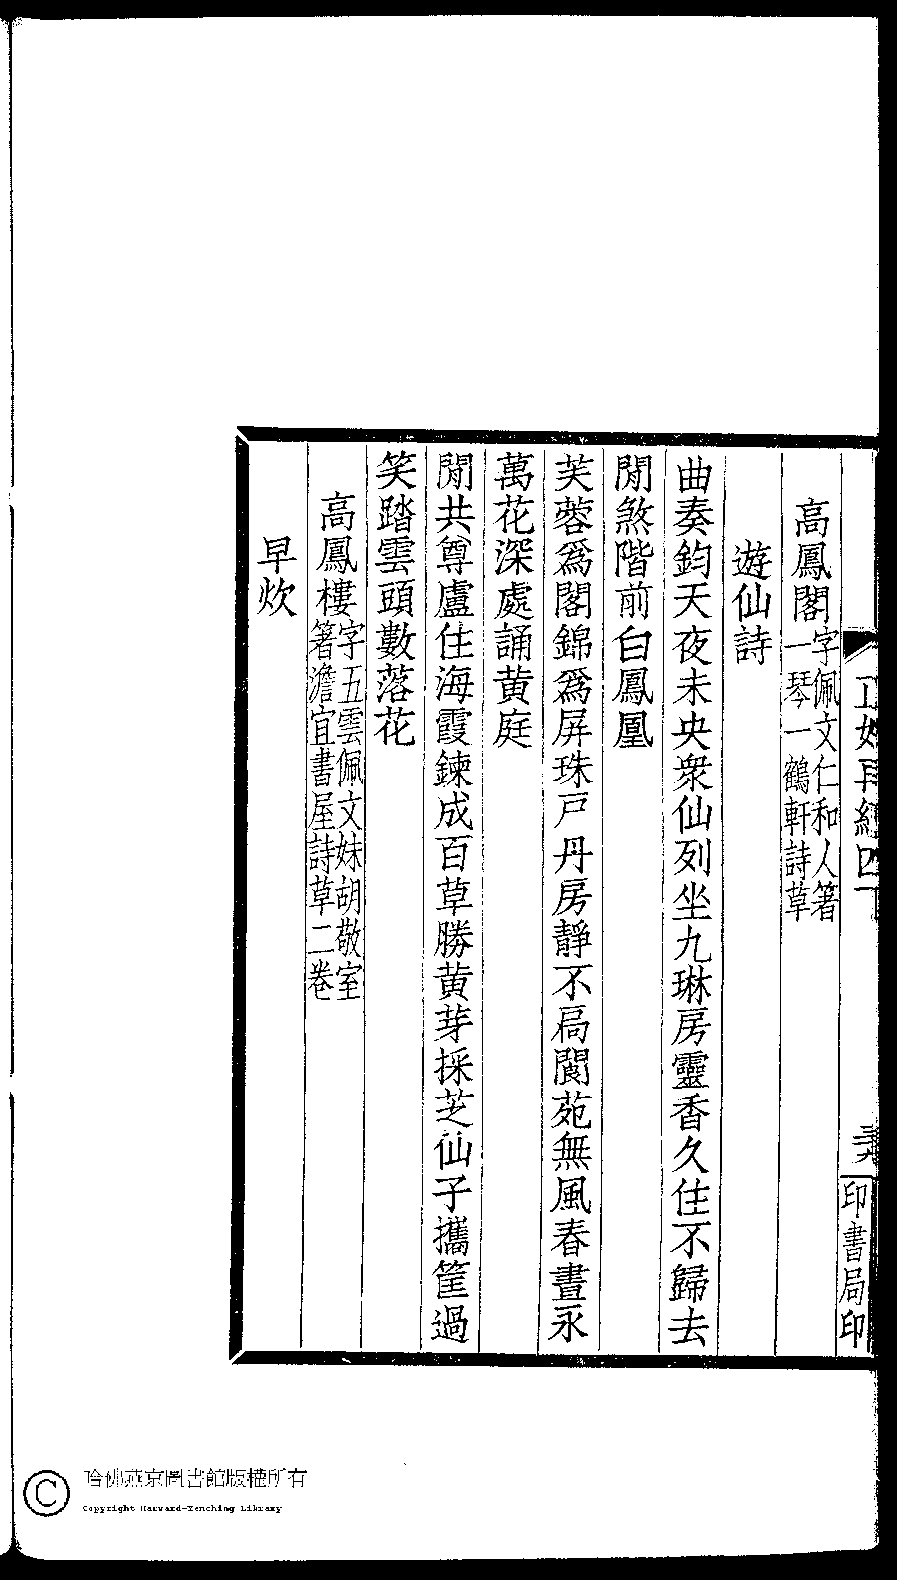 高鳳閣字佩文仁和人箸
一琴一鶴軒詩草
遊仙詩
曲奏鈞天夜未央衆仙列坐九琳房靈香久住不歸去
閒煞階前白鳳凰
芙蓉爲閣錦爲屏珠戸丹房靜不扃閬苑無風春晝永
萬花深處誦黃庭
閒共尊盧住海霞鍊成百草勝黃芽採芝仙子攜筐過
笑踏雲頭數落花
高鳳樓字五雲佩文妹胡敬室
箸澹宜書屋詩草二卷
早炊
印書局印
哈佛燕京圖書館版權所有
Copyright Harvard-Yenching Library